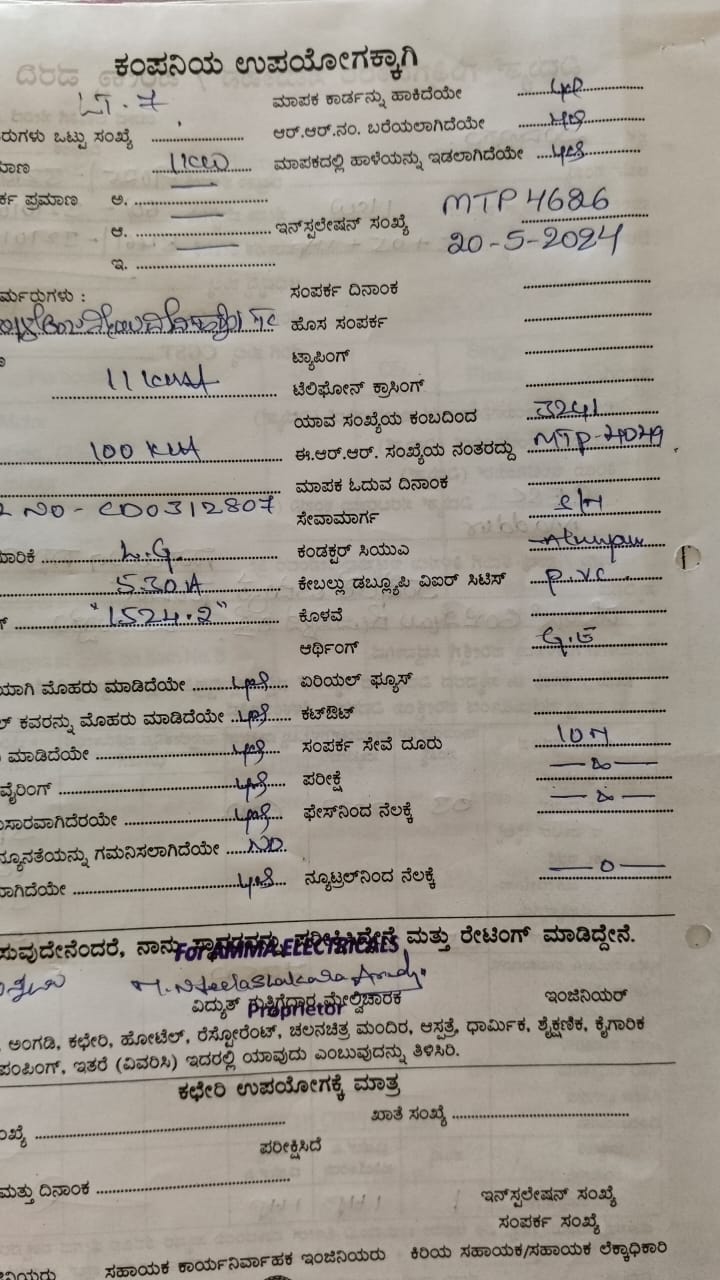 ಕಂಪನಿಯ ಉಪಯೋಗಕ್ಕಾಗಿ
LT. 7 ಮಾಪಕ ಕಾರ್ಡನ್ನು ಹಾಕಿದೆಯೇ yes
ರುಗಳು ಒಟ್ಟು ಸಂಖ್ಯೆ ಆರ್.ಆರ್.ನಂ. ಬರೆಯಲಾಗಿದೆಯೇ yes
ಮಾಣ ಮಾಪಕದಲ್ಲಿ ಹಾಳೆಯನ್ನು ಇಡಲಾಗಿದೆಯೇ yes
ರ್ಕ ಪ್ರಮಾಣ ಅ. MTP 4686
ಆ. ಇನ್‌ಸ್ಟಲೇಷನ್ ಸಂಖ್ಯೆ
20-5-2024
ಇ.
ರ್ಮರುಗಳು : ಸಂಪರ್ಕ ದಿನಾಂಕ
TC ಹೊಸ ಸಂಪರ್ಕ
ಟ್ಯಾಪಿಂಗ್
11 KVA ಟೆಲಿಫೋನ್ ಕ್ರಾಸಿಂಗ್
ಯಾವ ಸಂಖ್ಯೆಯ ಕಂಬದಿಂದ 3241
100 KVA ಈ.ಆರ್.ಆರ್. ಸಂಖ್ಯೆಯ ನಂತರದ್ದು MTP-4049
ಮಾಪಕ ಓದುವ ದಿನಾಂಕ
NO - CD0312807 ಸೇವಾಮಾರ್ಗ O/H
ಾರಿಕೆ L.G. ಕಂಡಕ್ಟರ್ ಸಿಯುವಿ
530 A ಕೇಬಲ್ಲು ಡಬ್ಲ್ಯೂಪಿ ವಿಐರ್ ಸಿಟಿಸ್ P.VC.
"1524.2" ಕೊಳವೆ
ಆರ್ಥಿಂಗ್
ಯಾಗಿ ಮೊಹರು ಮಾಡಿದೆಯೇ yes ಏರಿಯಲ್ ಫ್ಯೂಸ್
ಲ್ ಕವರನ್ನು ಮೊಹರು ಮಾಡಿದೆಯೇ yes ಕಟ್‌ಔಟ್
ಮಾಡಿದೆಯೇ yes ಸಂಪರ್ಕ ಸೇವೆ ದೂರು 10 M
ವೈರಿಂಗ್ yes ಪರೀಕ್ಷೆ
ುಸಾರವಾಗಿದೆರಯೇ yes ಫೇಸ್‌ನಿಂದ ನೆಲಕ್ಕೆ
ನ್ಯೂನತೆಯನ್ನು ಗಮನಿಸಲಾಗಿದೆಯೇ NO.
ಾಗಿದೆಯೇ yes ನ್ಯೂಟ್ರಲ್‌ನಿಂದ ನೆಲಕ್ಕೆ — 0 —
ಸುವುದೇನೆಂದರೆ, ನಾನು ಸ್ಥಾವರವನ್ನು ಪರೀಕ್ಷಿಸಿದ್ದೇನೆ ಮತ್ತು ರೇಟಿಂಗ್ ಮಾಡಿದ್ದೇನೆ.
For AMMA ELECTRICALS
ವಿದ್ಯುತ್ ಗುತ್ತಿಗೆದಾರ ಮೇಲ್ವಿಚಾರಕ ಇಂಜಿನಿಯರ್
Proprietor
ಅಂಗಡಿ, ಕಛೇರಿ, ಹೋಟೆಲ್, ರೆಸ್ಟೋರೆಂಟ್, ಚಲನಚಿತ್ರ ಮಂದಿರ, ಆಸ್ಪತ್ರೆ, ಧಾರ್ಮಿಕ, ಶೈಕ್ಷಣಿಕ, ಕೈಗಾರಿಕ
ಪಂಪಿಂಗ್, ಇತರೆ (ವಿವರಿಸಿ) ಇದರಲ್ಲಿ ಯಾವುದು ಎಂಬುವುದನ್ನು ತಿಳಿಸಿರಿ.
ಕಛೇರಿ ಉಪಯೋಗಕ್ಕೆ ಮಾತ್ರ
ಂಖ್ಯೆ ಖಾತೆ ಸಂಖ್ಯೆ
ಪರೀಕ್ಷಿಸಿದೆ
ಮತ್ತು ದಿನಾಂಕ ಇನ್‌ಸ್ಟಲೇಷನ್ ಸಂಖ್ಯೆ
ಸಂಪರ್ಕ ಸಂಖ್ಯೆ
ನಿಯರು ಸಹಾಯಕ ಕಾರ್ಯನಿರ್ವಾಹಕ ಇಂಜಿನಿಯರು ಕಿರಿಯ ಸಹಾಯಕ/ಸಹಾಯಕ ಲೆಕ್ಕಾಧಿಕಾರಿ